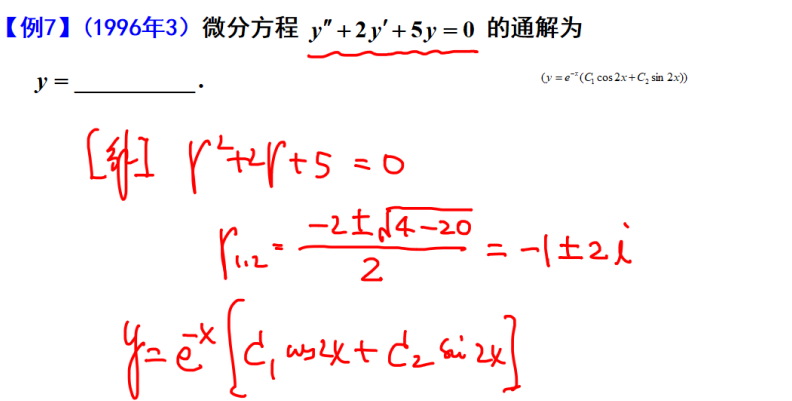 【例7】(1996年3) 微分方程 y″+2y′+5y=0 的通解为
y = ________. (y=e⁻ˣ(C₁cos2x+C₂sin 2x))
[解] r²+2r+5=0
r₁,₂ = (-2±√(4-20))/2 = -1±2i
y=e⁻ˣ[C₁cos2x+C₂sin2x]